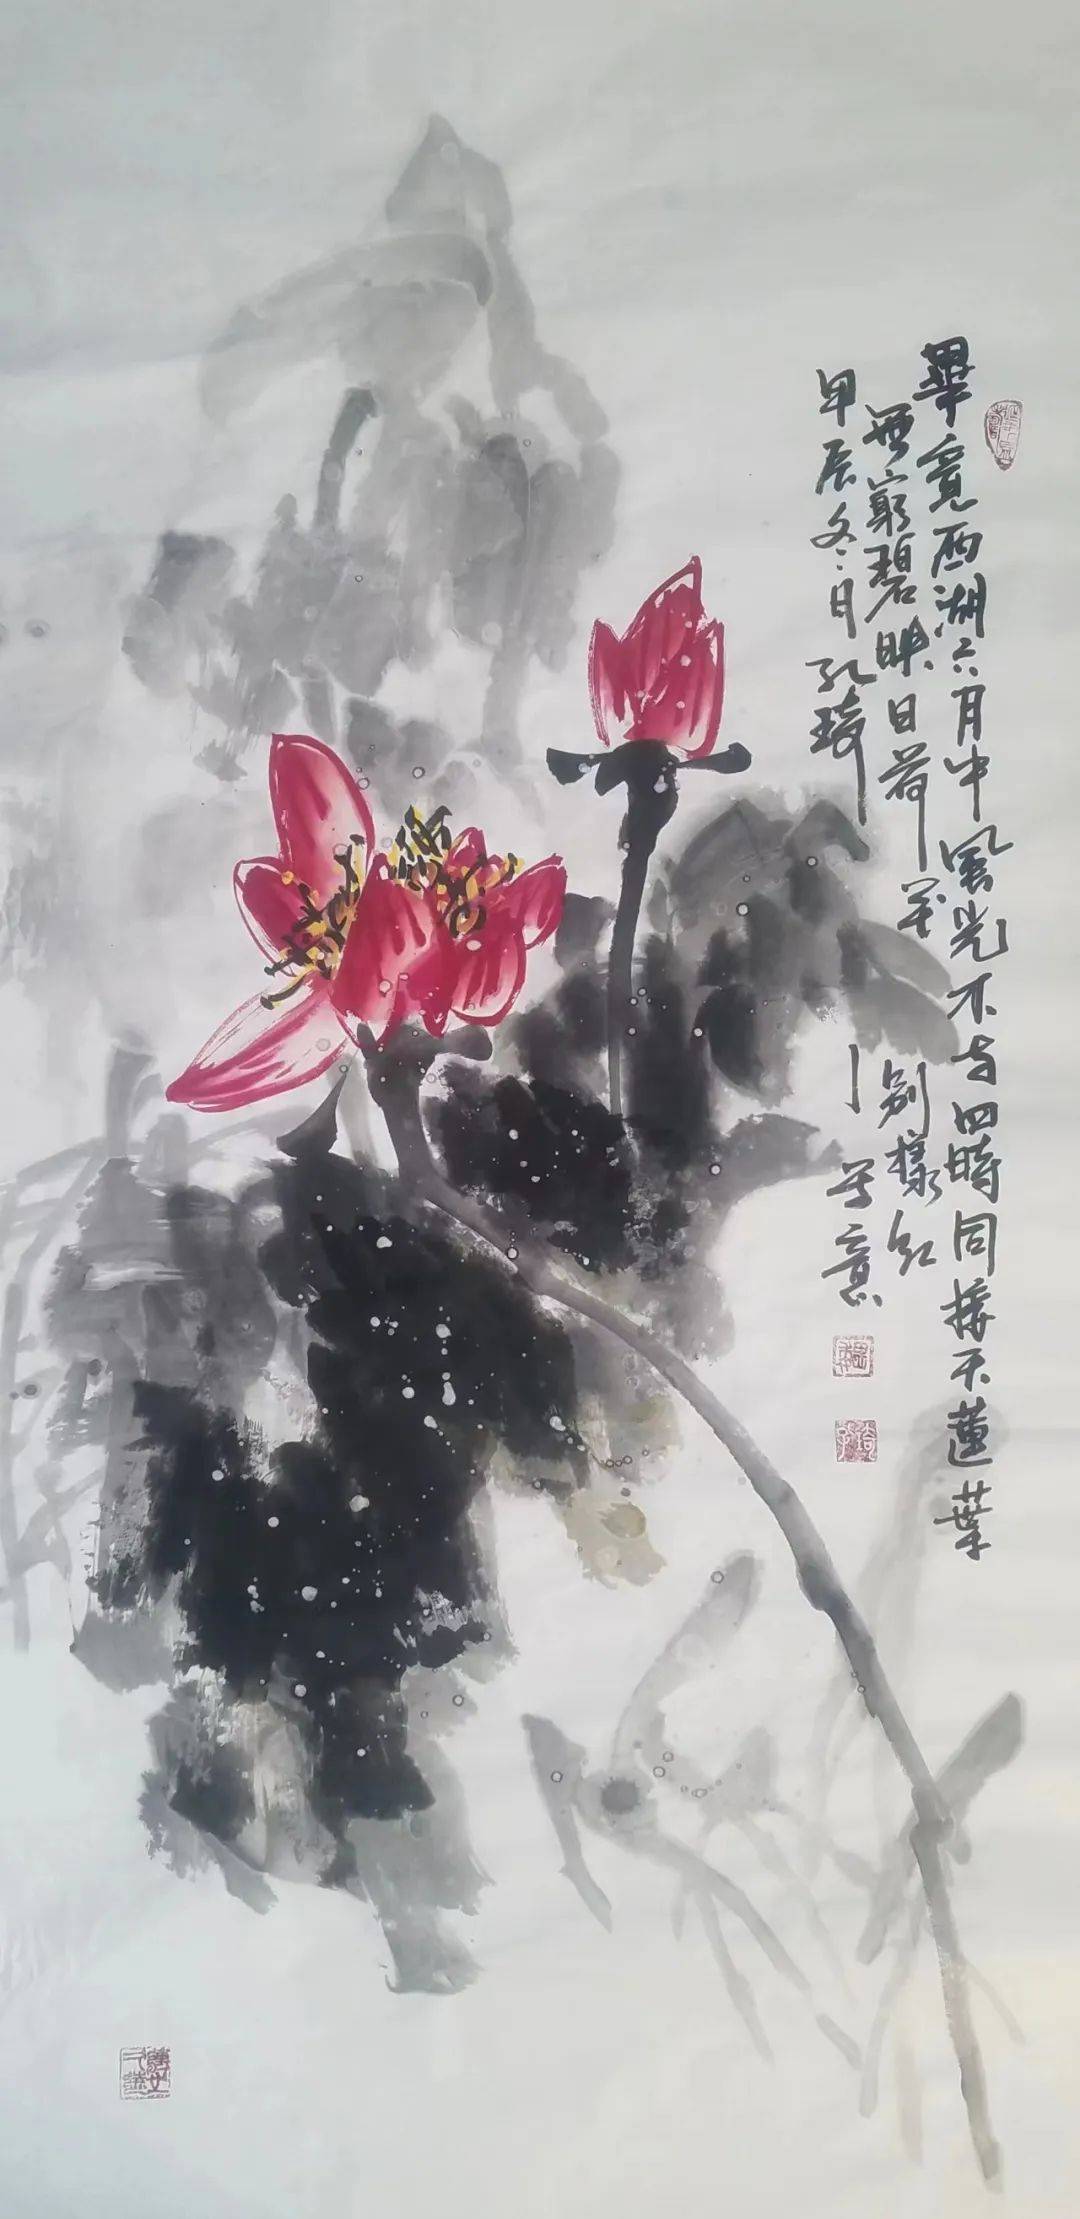 畢竟西湖六月中風光不与四時同接天蓮葉
無窮碧映日荷花别樣紅
甲辰冬月孔琦寫意